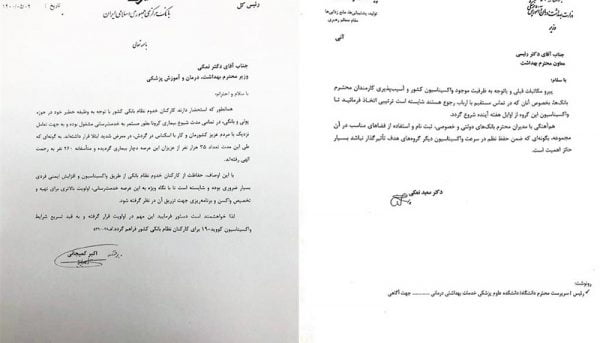 رئیس کل
بانک مرکزی جمهوری اسلامی ایران
تاریخ
باسمه تعالی
جناب آقای دکتر نمکی
وزیر محترم بهداشت، درمان و آموزش پزشکی
با سلام و احترام
همانطور که استحضار دارند کارکنان خدوم نظام بانکی کشور با توجه به وظیفه خطیر خود در حوزه
پولی و بانکی، در تمامی مدت شیوع بیماری کرونا بطور مستمر به خدمت‌رسانی مشغول بوده و به جهت تعامل
نزدیک با مردم عزیز کشورمان و کار با اسکناس در گردش، در معرض شدید ابتلا قرار داشته‌اند. به گونه‌ای که
طی این مدت تعداد ۲۵ هزار نفر از عزیزان این عرصه دچار بیماری گردیده و متأسفانه ۲۶۰ نفر به رحمت
الهی رفته‌اند.
با این اوصاف، حفاظت از کارکنان خدوم نظام بانکی از طریق واکسیناسیون و افزایش ایمنی فردی
بسیار ضروری بوده و شایسته است تا با نگاه ویژه به این عرصه خدمت‌رسانی، اولویت بالاتری برای تهیه و
تخصیص واکسن و برنامه‌ریزی جهت تزریق آن در نظر گرفته شود.
لذا خواهشمند است دستور فرمایید این مهم در اولویت قرار گرفته و به قید تسریع شرایط
واکسیناسیون کووید-۱۹ برای کارکنان نظام بانکی کشور فراهم گردد.
اکبر کمیجانی
وزیر
تولید، پشتیبانی‌ها، مانع زدایی‌ها
مقام معظم رهبری
جناب آقای دکتر رئیسی
معاون محترم بهداشت
با سلام؛
پیرو مکاتبات قبلی و باتوجه به ظرفیت موجود واکسیناسیون کشور و آسیب‌پذیری کارمندان محترم
بانک‌ها، بخصوص آنان که در تماس مستقیم با ارباب رجوع هستند شایسته است ترتیبی اتخاذ فرمائید تا
واکسیناسیون این گروه از اوائل هفته آینده شروع گردد.
هماهنگی با مدیران محترم بانک‌های دولتی و خصوصی، ثبت نام و استفاده از فضاهای مناسب در آن
مجموعه، بگونه‌ای که ضمن حفظ نظم در سرعت واکسیناسیون دیگر گروه‌های هدف تأثیرگذار نباشد بسیار
حائز اهمیت است.
دکتر سعید نمکی
رونوشت:
رئیس / سرپرست محترم دانشگاه/ دانشکده علوم پزشکی خدمات بهداشتی درمانی ... جهت آگاهی